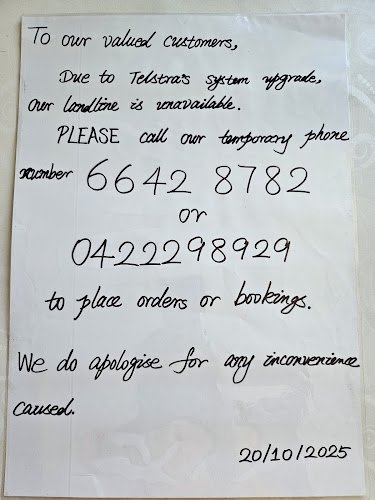 To our valued customers,
Due to Telstra's system upgrade,
our landline is unavailable.
PLEASE call our temporary phone
number 6642 8782
or
0422298929
to place orders or bookings.
We do apologise for any inconvenience
caused.
20/10/2025